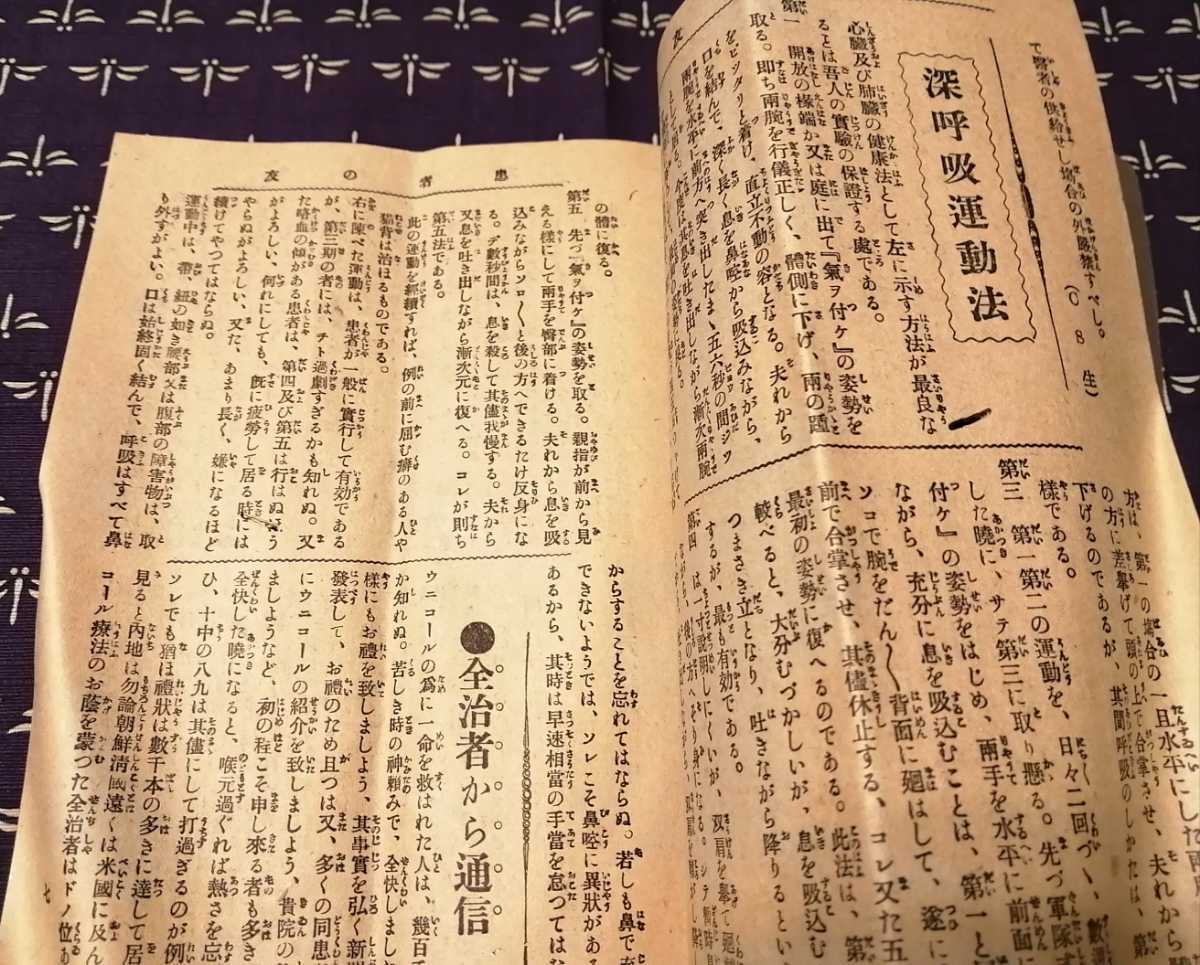 で醫者の供給せし場合の外嚴禁すべし。
(C 8 生)
深呼吸運動法
心臟及び肺臟の健康法として左に示す方法が最良な
るとは吾人の實驗の保證する處である。
第一 開放の椽端か又は庭に出て『氣ヲ付ケ』の姿勢を
取る。即ち兩腕を行儀正しく、體側に下げ、兩の踵
をピッタリと着け、直立不動の容となる。夫れから
口を結んで、深く長く息を鼻腔から吸込みながら、
兩腕を水平に前方へ突き出したまゝ五六秒の間ジッ
方は、第一の場合の
の方に差擧げて頭の上で合掌させ、夫れから
下げるのであるが、其間呼吸のしかたは、第一
樣である。
第三 第一第二の運動を、日々二回づゝ、數週
した曉に、サテ第三に取り懸る。先づ軍隊式
付ケ』の姿勢をはじめ、兩手を水平に前面に
ながら、充分に息を吸込むことは、第一と
ソコで腕をだん〳〵背面に廻はして、遂に
前で合掌させ、其儘休止する、コレ又た五
最初の姿勢に復へるのである。此法は、第
較べると、大分むづかしいが、息を吸込む
つまさき立となり、吐きながら降りるとい
するが、最も有効である。
第四 は一寸說明しにくいが、双肩を擧て廻
患者の友
の體に復る。
第五 先づ『氣ヲ付ケ』の姿勢を取る。親指が前から見
える樣にして兩手を臀部に着ける。夫れから息を吸
込みながらソロ〳〵と後の方へできるだけ反身にな
る。デ數秒間は、息を殺して其儘我慢する。夫から
又息を吐き出しながら漸次元に復へる。コレが則ち
第五法である。
此の運動を繼續すれば、例の前に屈む癖のある人や
猫背は治はるものである。
右に陳べた運動は、患者が一般に實行して有効である
が、第三期の者には、チト過劇すぎるかも知れぬ。又
た喀血の傾がある患者は、第四及び第五は行はぬほう
がよろしい、何れにしても、旣に疲勞して居る時には
やらぬがよろしい、又た、あまり長く、嫌になるほど
續けてやつてはならぬ。
運動中は、帶、紐の如き腰部又は腹部の障害物は、取
り外すがよい。口は始終固く結んで、呼吸はすべて鼻
からすることを忘れてはならぬ。若しも鼻で
できないようでは、ソレこそ鼻腔に異狀があ
あるから、其時は早速相當の手當を怠つては
●全治者から通信
ウニコールの爲に一命を救はれた人は、幾百
か知れぬ。苦しき時の神賴みで、全快しまし
樣にもお禮を致しましよう、其事實を弘く新
發表して、お禮のため且つは又、多くの同患
にウニコールの紹介を致しましよう、貴院の
ましようなど、初の程こそ申し來る者も多き
全快した曉になると、喉元過ぐれば熱さを忘
ひ、十中の八九は其儘にして打過ぎるのが例
ソレでも猶ほ禮狀は數千本の多きに達して居
見ると內地は勿論朝鮮淸國遠くは米國に及ん
コール療法のお蔭を蒙つた全治者はドノ位あ
七